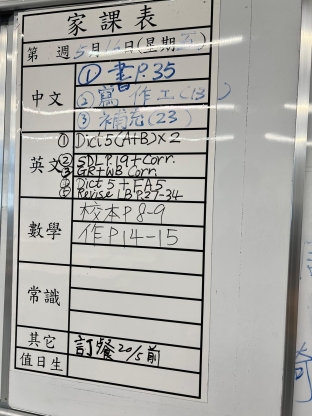 家課表
第 週 5月 日(星期五)
中文
① 書P.35
② 寫 作工(13)
③ 補充(23)
英文
① Dict 5 (A+B) x 2
② SDL P.19 + Corr.
③ GR+WB Corr.
④ Dict 5 + FA5
⑤ Revise LB P.27-34
數學
校本P8-9
作P14-15
常識
其它
訂餐20/5前
值日生